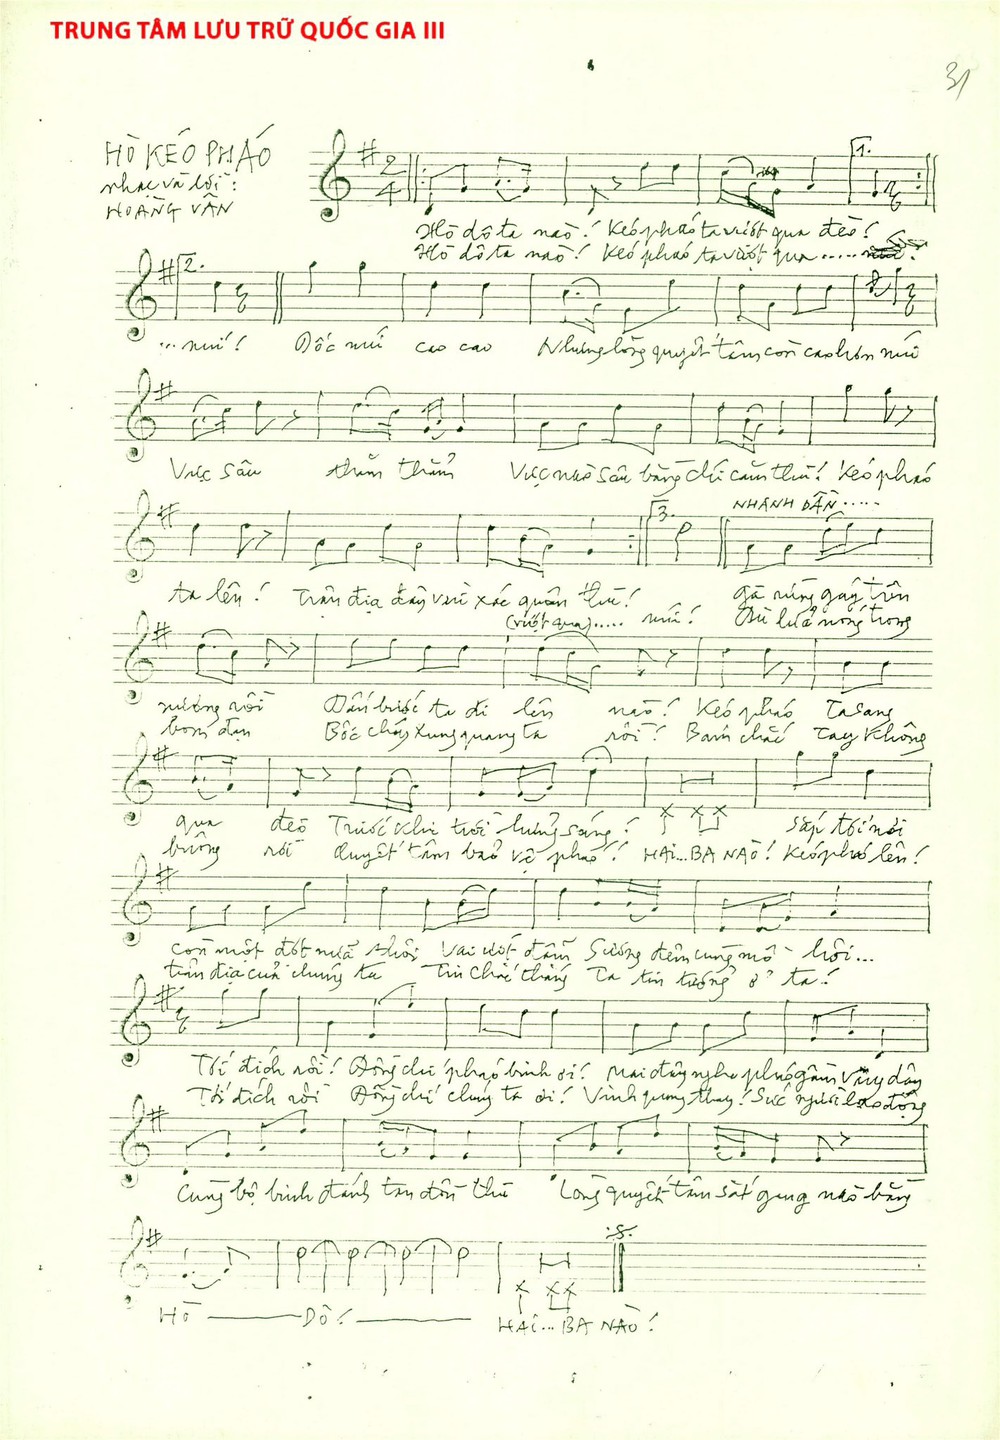 TRUNG TÂM LƯU TRỮ QUỐC GIA III
31
HÒ KÉO PHÁO
nhạc và lời:
HOÀNG VÂN
2
4
1.
Hò dô ta nào! Kéo pháo ta vượt qua đèo!
Hò dô ta nào! Kéo pháo ta vượt qua .....
2.
... núi! Dốc núi cao cao Nhưng lòng quyết tâm còn cao hơn núi
Vực sâu thăm thẳm Vực nào sâu bằng chí căm thù! Kéo pháo
NHANH DẦN .....
3.
ta lên! Trận địa đây vùi xác quân thù! Gà rừng gáy trên
(vượt qua) ..... núi! Dù lửa nóng trong
nương rồi Dấn bước ta đi lên nào! Kéo pháo ta sang
bom đạn Bốc cháy xung quanh ta rồi! Bám chắc tay không
qua đèo Trước khi trời hửng sáng! Sắp tới nơi
buông rồi Quyết tâm bảo vệ pháo! HAI... BA NÀO! Kéo pháo lên!
còn một đốt nữa thôi Vai ướt đẫm Sương đêm cùng mồ hôi...
trận địa của chúng ta Tin chắc thắng Ta tin tưởng ở ta!
Tới đích rồi! Đồng chí pháo binh ơi! Mai đây nghe pháo gầm vang dậy
Tới đích rồi Đồng chí chúng ta ơi! Vinh quang thay! Sức người lao động
Cùng bộ binh đánh tan đồn thù Lòng quyết tâm sắt gang nào bằng
HÒ DÔ! HAI... BA NÀO!